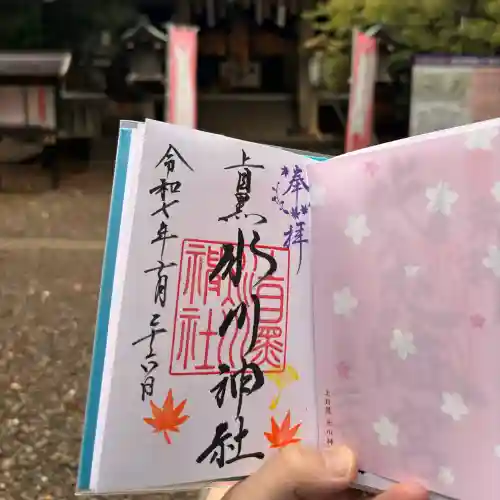 奉拝
上目黒
氷川神社
上目黒氷川神社
令和七年六月二十六日
上目黒 氷川神